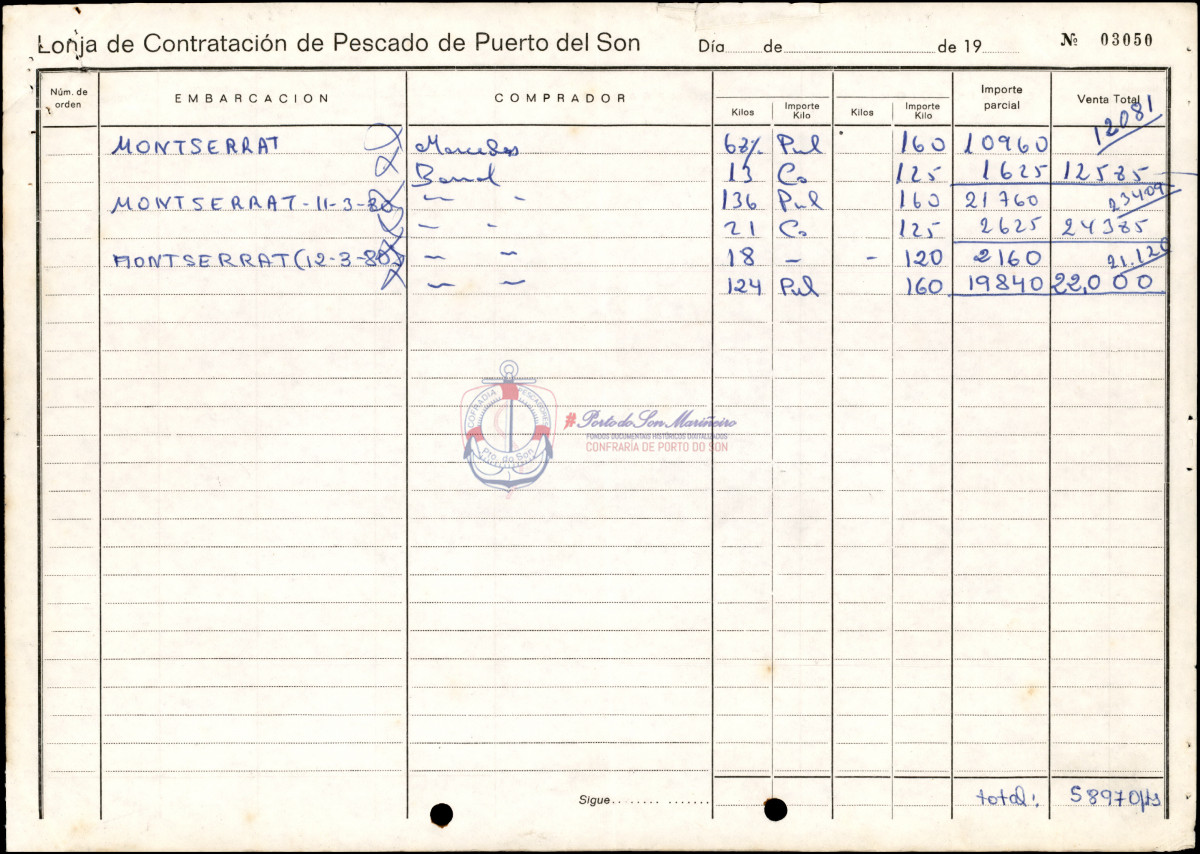 Lonja de Contratación de Pescado de Puerto del Son Día de de 19 Nº 03050
Núm. de orden EMBARCACION COMPRADOR Kilos Importe Kilo Kilos Importe Kilo Importe parcial Venta Total
12081
MONTSERRAT Mercedes Pul 160 10960
13 Co 125 1625 12585
MONTSERRAT-11-3-80 " " 136 Pul 160 21760 23409
" " 21 Co 125 2625 24385
MONTSERRAT (12-3-80) " " 18 - - 120 2160 21.120
" " 124 Pul 160 19840 22,000
COFRADIA PESCADORES
Pto. do Son
#Porto do Son Mariñeiro
FONDOS DOCUMENTAIS HISTÓRICOS DIXITALIZADOS
CONFRARÍA DE PORTO DO SON
Sigue........ ....... total: 58970 pts